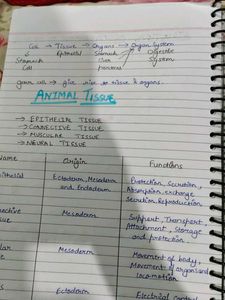 Cell → Tissue → Organs → Organ System
Stomach Epithelial Stomach Digestive
Cell Liver System
Pancreas
germ cell → give rise to tissue & organs.
ANIMAL TISSUE
→ EPITHELIAL TISSUE
→ CONNECTIVE TISSUE
→ MUSCULAR TISSUE
→ NEURAL TISSUE
Name Origin Functions
thelial Ectoderm, Mesoderm Protection, Secretion,
and Endoderm Absorption, exchange
Secretion, Reproduction
ective Mesoderm Support, Transport,
sue Attachment, Storage
and protection.
lar Mesoderm Movement of body,
ue Movement of organs and
locomotion
Ectoderm Electrical Control